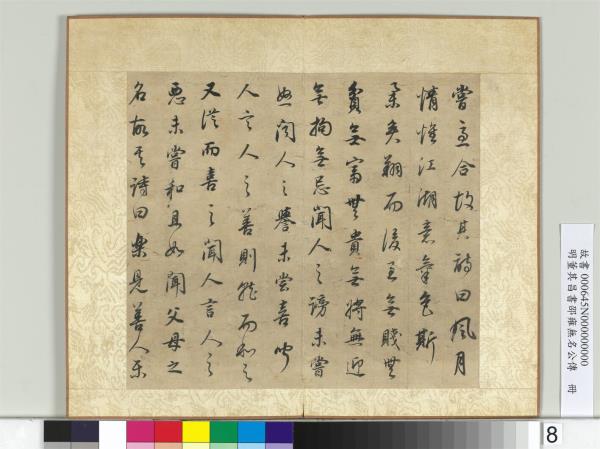 嘗急合故其詩曰風月
情懷江湖意氣色斯
舉矣翔而後至無賤無
貧無富無貴無將無迎
無拘無忌聞人之謗未嘗
怒聞人之譽未嘗喜聞
人言人之善則就而和之
又從而喜之聞人言人之
惡未嘗和且如聞父母之
名故其詩曰樂見善人樂
故書000645N000000000
明董其昌書邵雍無名公傳 冊
8